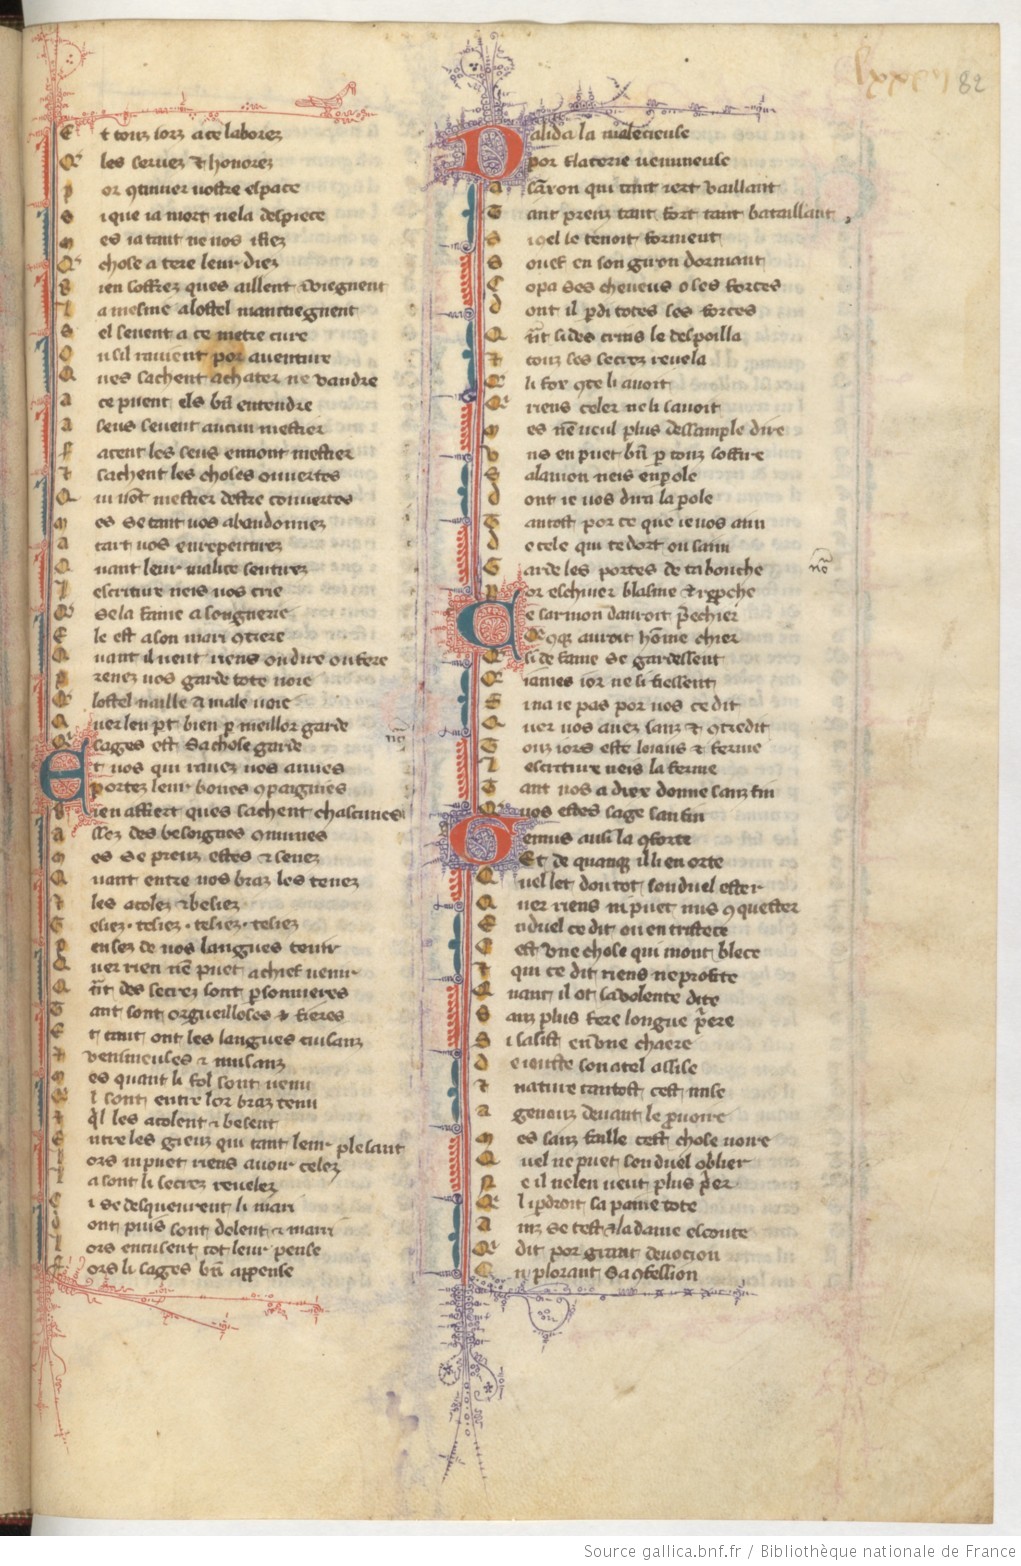 lxxxij 82
Et touz iorz a ce laborez
Q̃ les seruez ⁊ honorez
por ꝯtinuer uostre espace
si que ia mort ne la despiece
mes ia tant ne uos ifiez
Q̃ chose a tere leur diez
Bien soffrez ques aillent ⁊ uiegnent
la mesnie a lostel maintiegnent
sel seuent a ce metre cure
Ou sil rauient por auenture
Ques sachent achater ne uandre
a ce puent els bñ entendre
a seus seuent aucun mestier
facent les seus en ont mestier
⁊ sachent les choses ouuertes
Qui nõt mestier destre couuertes
mes se tant uos abandonnez
a tart uos en repentirez
Quant leur malice sentirez
lescriture neis uos crie
Q̃ se la fame a seignerie
Ele est a son mari ꝯtrere
Quant il ueut riens ou dire ou fere
prenez uos garde tote uoie
Q̃ lostel naille a male uoie
Quer len p̱t bien p̱ meillor garde
Q̃ sages est sa chose garde
Et uos qui rauez uos amies
portez leur bones ꝯpaignies
Bien affiert ques sachent chascunes
assez des besoignes ꝯmunes
mes se preuz estes ⁊ senez
Quant entre uos braz les tenez
⁊ les acolez ⁊ besiez
Tesiez · tesiez · tesiez · tesiez
pensez de uos langues tenir
Quer rien nẽ puet a chief uenir
Qñt des secrez sont p̱sonnieres
Tant sont orgueilloses ⁊ fieres
Et tant ont les langues cuisanz
⁊ uenimeuses ⁊ nuisanz
mes quant li fol sont uenu
Q̃l sont entre lor braz tenu
⁊ q̃l les acolent ⁊ besent
Entre les gieuz qui tant leur plesant
lors ni puet riens auoir celez
la sont li secrez reuelez
Ci se desqueurent li mari
dont puis sont dolent ⁊ marri
lors encusent tot leur pense
fors li sages bñ appense
Dalida la malicieuse
por flaterie uenimeuse
a sãson qui tant iert vaillant
Tant preuz tant fort tant bataillant
Si cel le tenoit forment
Souef en son giron dormant
Copa ses cheueus o ses forces
dont il p̱di totes ses forces
Qñt si des crins le despoilla
⁊ touz ses secrez reuela
Q̃ li fox ꝯte li auoit
Q̃ riens celer ne li sauoit
mes nẽ ueul plus dessample dire
Vns en puet bñ p̱ touz soffire
Salamon neis en pole
dont ie uos dira la pole
Tantost por ce que ie uos ain
de cele qui te dort ou sain
Garde les portes de ta bouche
por eschiuer blasme ⁊ rep̱che
Ce sarmon dauroit p̃echier
Q̃cõq̃ auroit hõme chier
Q̃ si de fame se gardessent
Q̃ iames ior ne si fiessent
Si na ie pas por uos ce dit
Quer uos auez sanz ⁊ ꝯtredit
Touz iors este loiaus ⁊ ferme
lescriture neis la ferme
Tant uos a diex donne sanz fin
Q̃ uos estes sage san fin
Genius ausi la ꝯforte
Et de quanq̃ il li en orte
Quel let dou tot son duel ester
Quer riens ni puet nus ꝯquester
En duel ce dit ou en tristece
Cest vne chose qui mout blece
⁊ qui ce dit riens ne profite
Quant il ot sa uolente dite
Sanz plus fere longue p̃ere
Si sasist en vne chaere
de iouste son atel assise
⁊ nature tantost cest mise
a genouz deuant le p̱uoire
mes sanz faille cest chose uoire
Quel ne puet son duel oblier
Ne il nelen ueut plus p̃er
Q̃ li p̱droit sa paine tote
ainz se test ⁊ la dame escoute
Q̃ dit por grant deuocion
En plorant sa ꝯfession
nõ
nõ
Source gallica.bnf.fr / Bibliothèque nationale de France